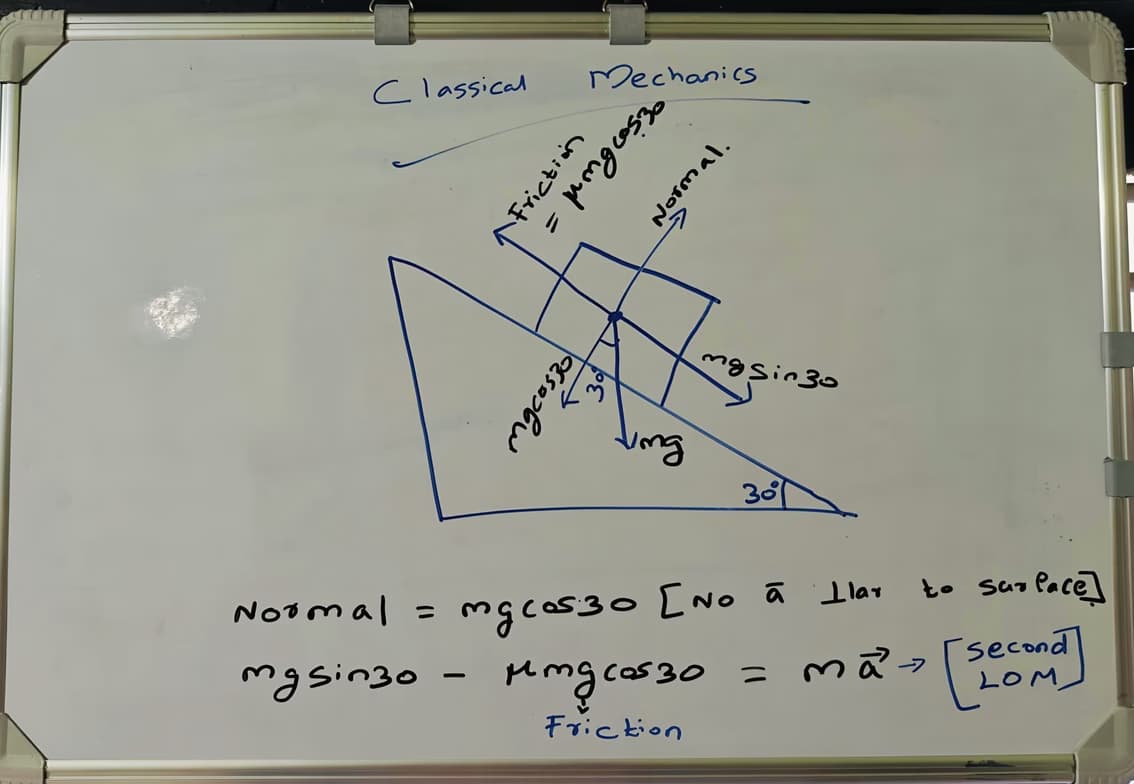 Classical Mechanics
Friction
= μmgcos30
Normal.
mgcos30
30°
mg
mgsin30
30°
Normal = mgcos30 [No ā ⊥lar to surface]
mgsin30 - μmgcos30 = ma⃗ → [second LOM]
Friction